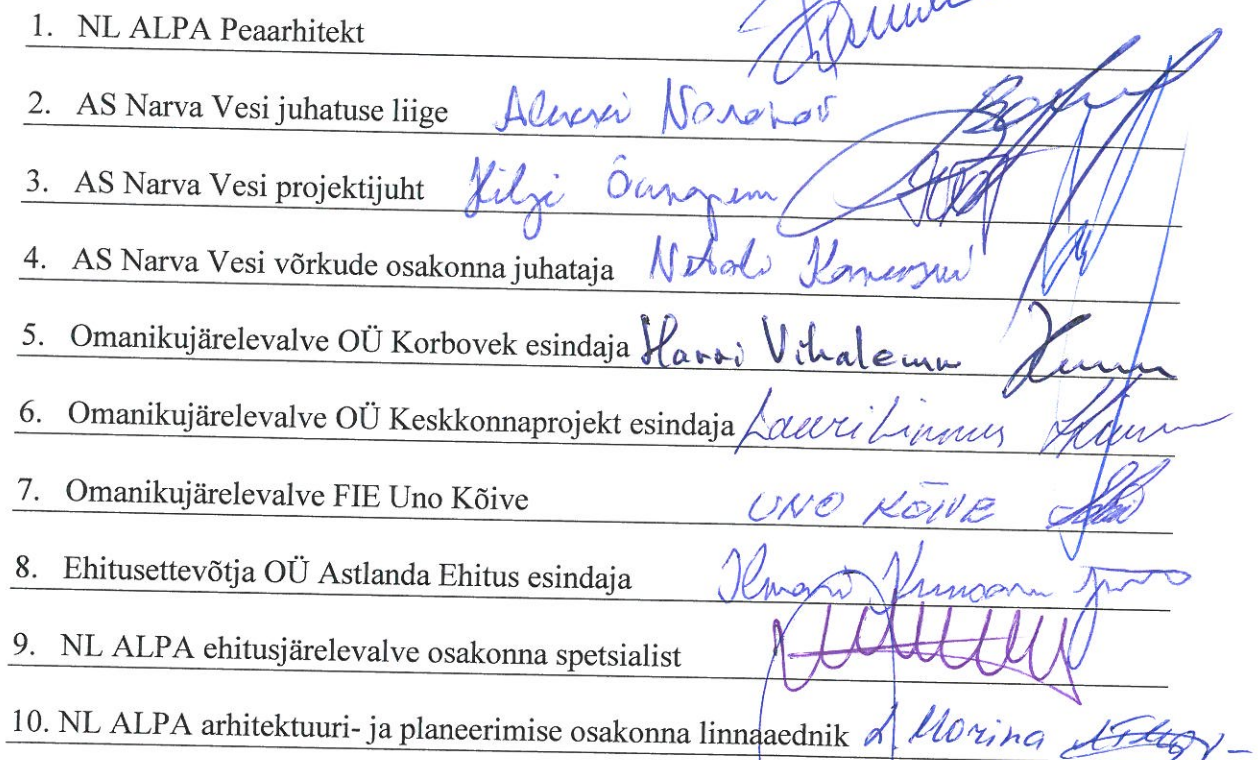 1. NL ALPA Peaarhitekt
2. AS Narva Vesi juhatuse liige
3. AS Narva Vesi projektijuht
4. AS Narva Vesi võrkude osakonna juhataja
5. Omanikujärelevalve OÜ Korbovek esindaja Harri Vihalemm
6. Omanikujärelevalve OÜ Keskkonnaprojekt esindaja Lauri Linnus
7. Omanikujärelevalve FIE Uno Kõive UNO KÕIVE
8. Ehitusettevõtja OÜ Astlanda Ehitus esindaja
9. NL ALPA ehitusjärelevalve osakonna spetsialist
10. NL ALPA arhitektuuri- ja planeerimise osakonna linnaaednik Morina